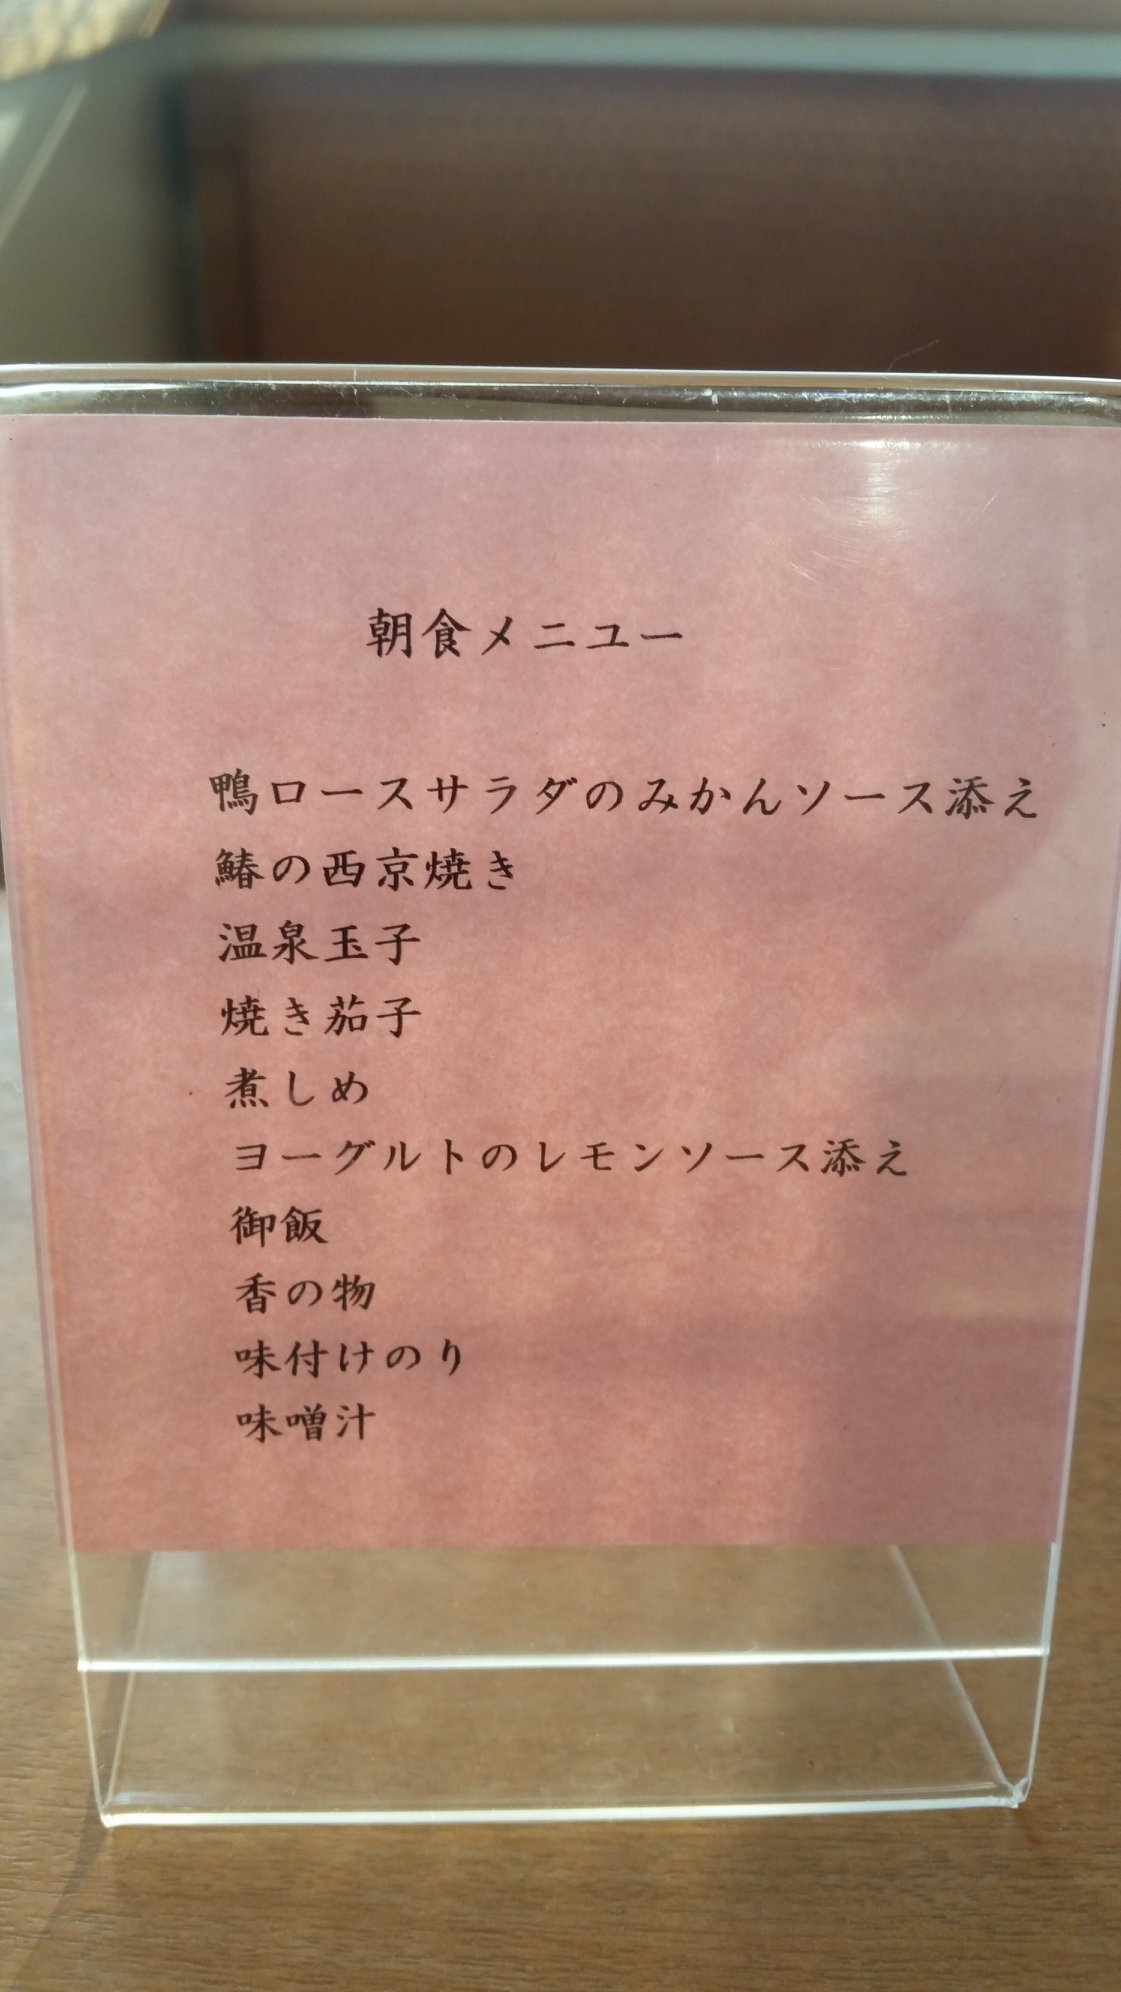 朝食メニュー
鴨ロースサラダのみかんソース添え
鰆の西京焼き
温泉玉子
焼き茄子
煮しめ
ヨーグルトのレモンソース添え
御飯
香の物
味付けのり
味噌汁